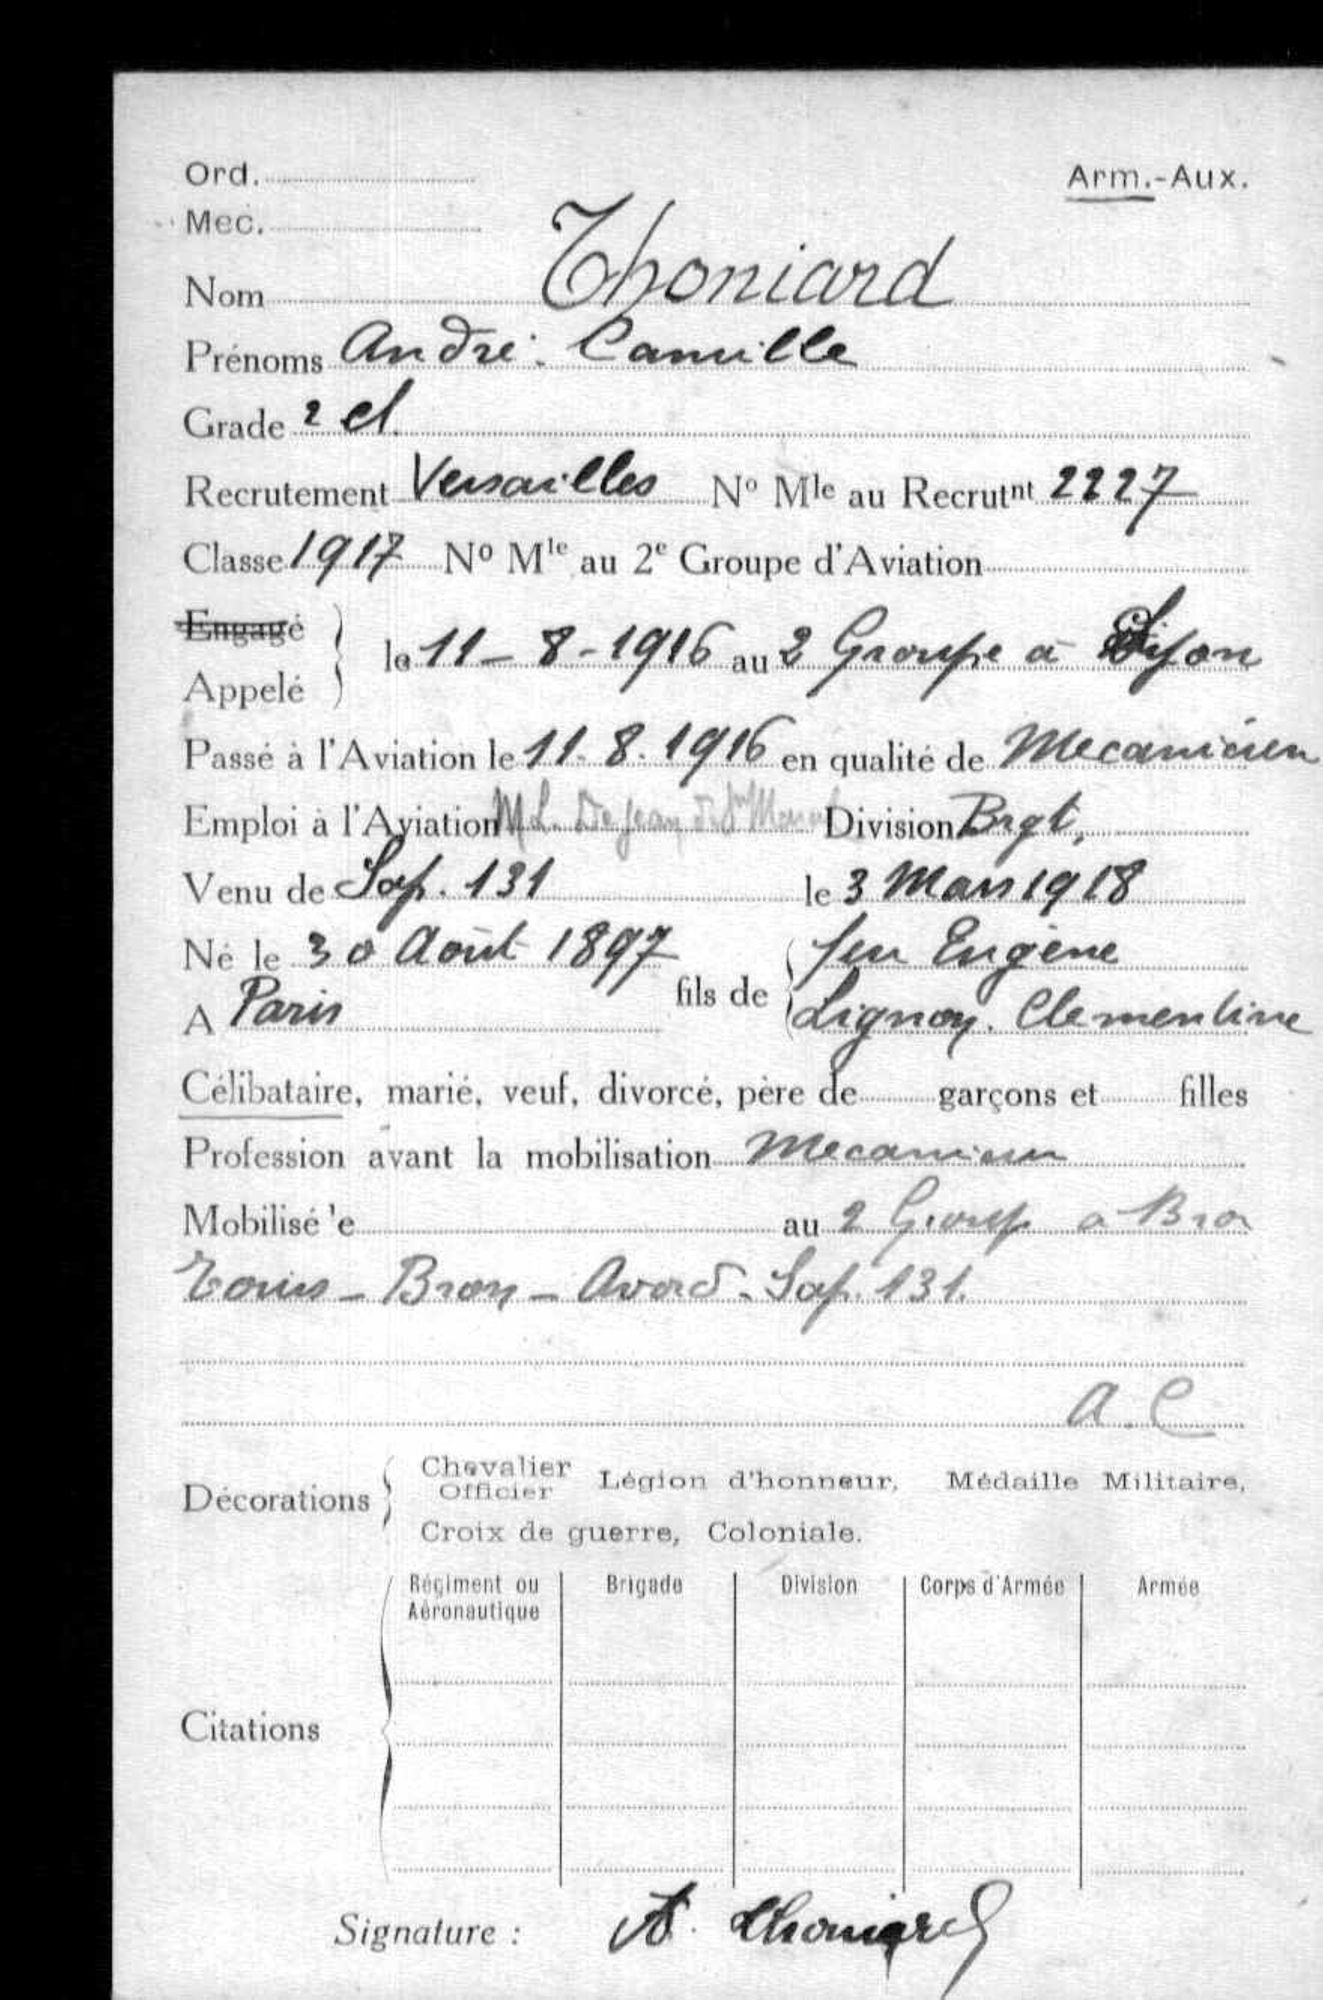 Ord. Arm.-Aux.
Mec.
Nom Thoniard
Prénoms André. Camille
Grade 2 cl.
Recrutement Versailles No Mle au Recrutnt 2227
Classe 1917 No Mle au 2e Groupe d'Aviation
Engagé
Appelé
le 11-8-1916 au 2 Groupe à Lyon
Passé à l'Aviation le 11.8.1916 en qualité de Mecanicien
Emploi à l'Aviation Division Brgt.
Venu de Sop. 131 le 3 Mars 1918
Né le 30 Août 1897 fils de feu Eugène
A Paris Lignon. Clementine
Célibataire, marié, veuf, divorcé, père de garçons et filles
Profession avant la mobilisation Mecanicien
Mobilisé le au 2 Group a Bron
Tours - Bron - Avord - Sop. 131.
A. C
Décorations Chevalier Officier Légion d'honneur, Médaille Militaire,
Croix de guerre, Coloniale.
Citations
Régiment ou Aéronautique Brigade Division Corps d'Armée Armée
Signature : A. Thoniard